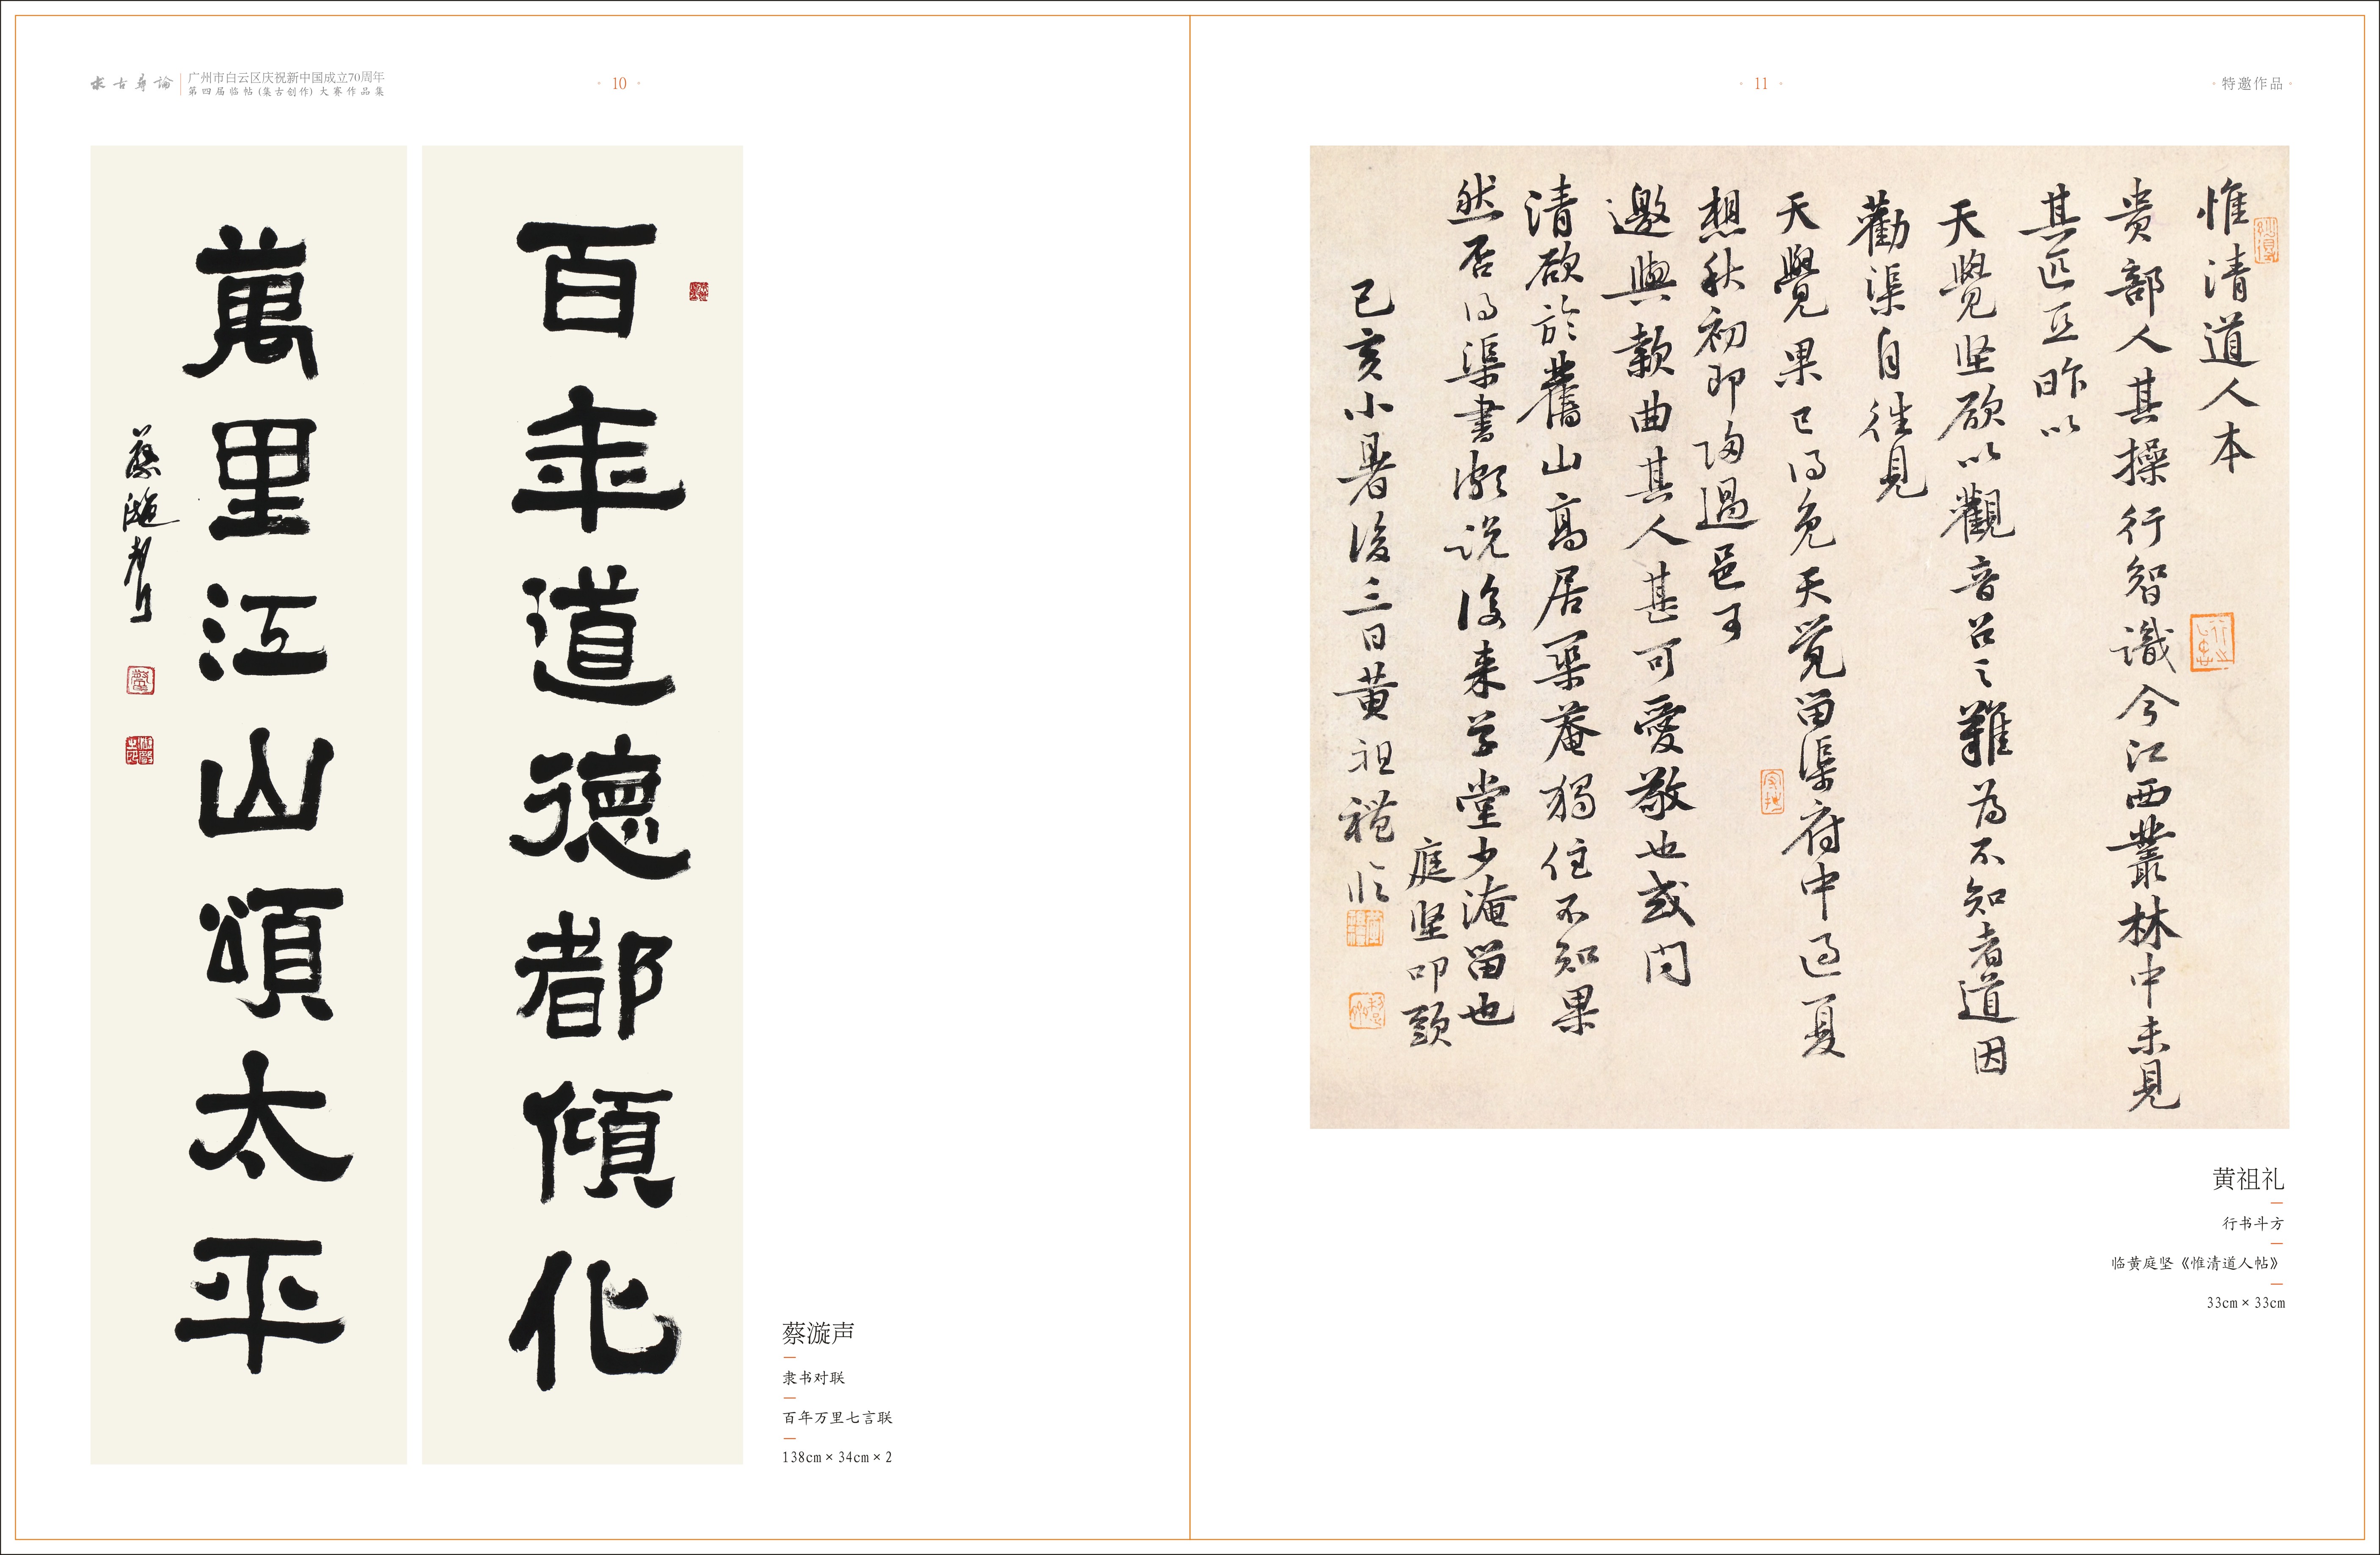 求古尋論
广州市白云区庆祝新中国成立70周年
第四届临帖(集古创作)大赛作品集
· 10 ·
百年道德都傾化
萬里江山頌太平
蔡漩聲
蔡漩声
隶书对联
百年万里七言联
138cm×34cm×2
· 11 ·
·特邀作品·
惟清道人本
貴部人其操行智識今江西叢林中未見
其匹亞昨以
天覺堅欲以觀音召之難為不知者道因
勸渠自往見
天覺果已得免天覺留渠府中過夏
想秋初即歸過邑可
邀與款曲其人甚可愛敬也或問
清欲於舊山高居築菴獨住不知果
然否得渠書頗說後来草堂少淹留也
庭堅叩頭
己亥小暑後三日黄祖禮臨
黄祖礼
行书斗方
临黄庭坚《惟清道人帖》
33cm×33cm